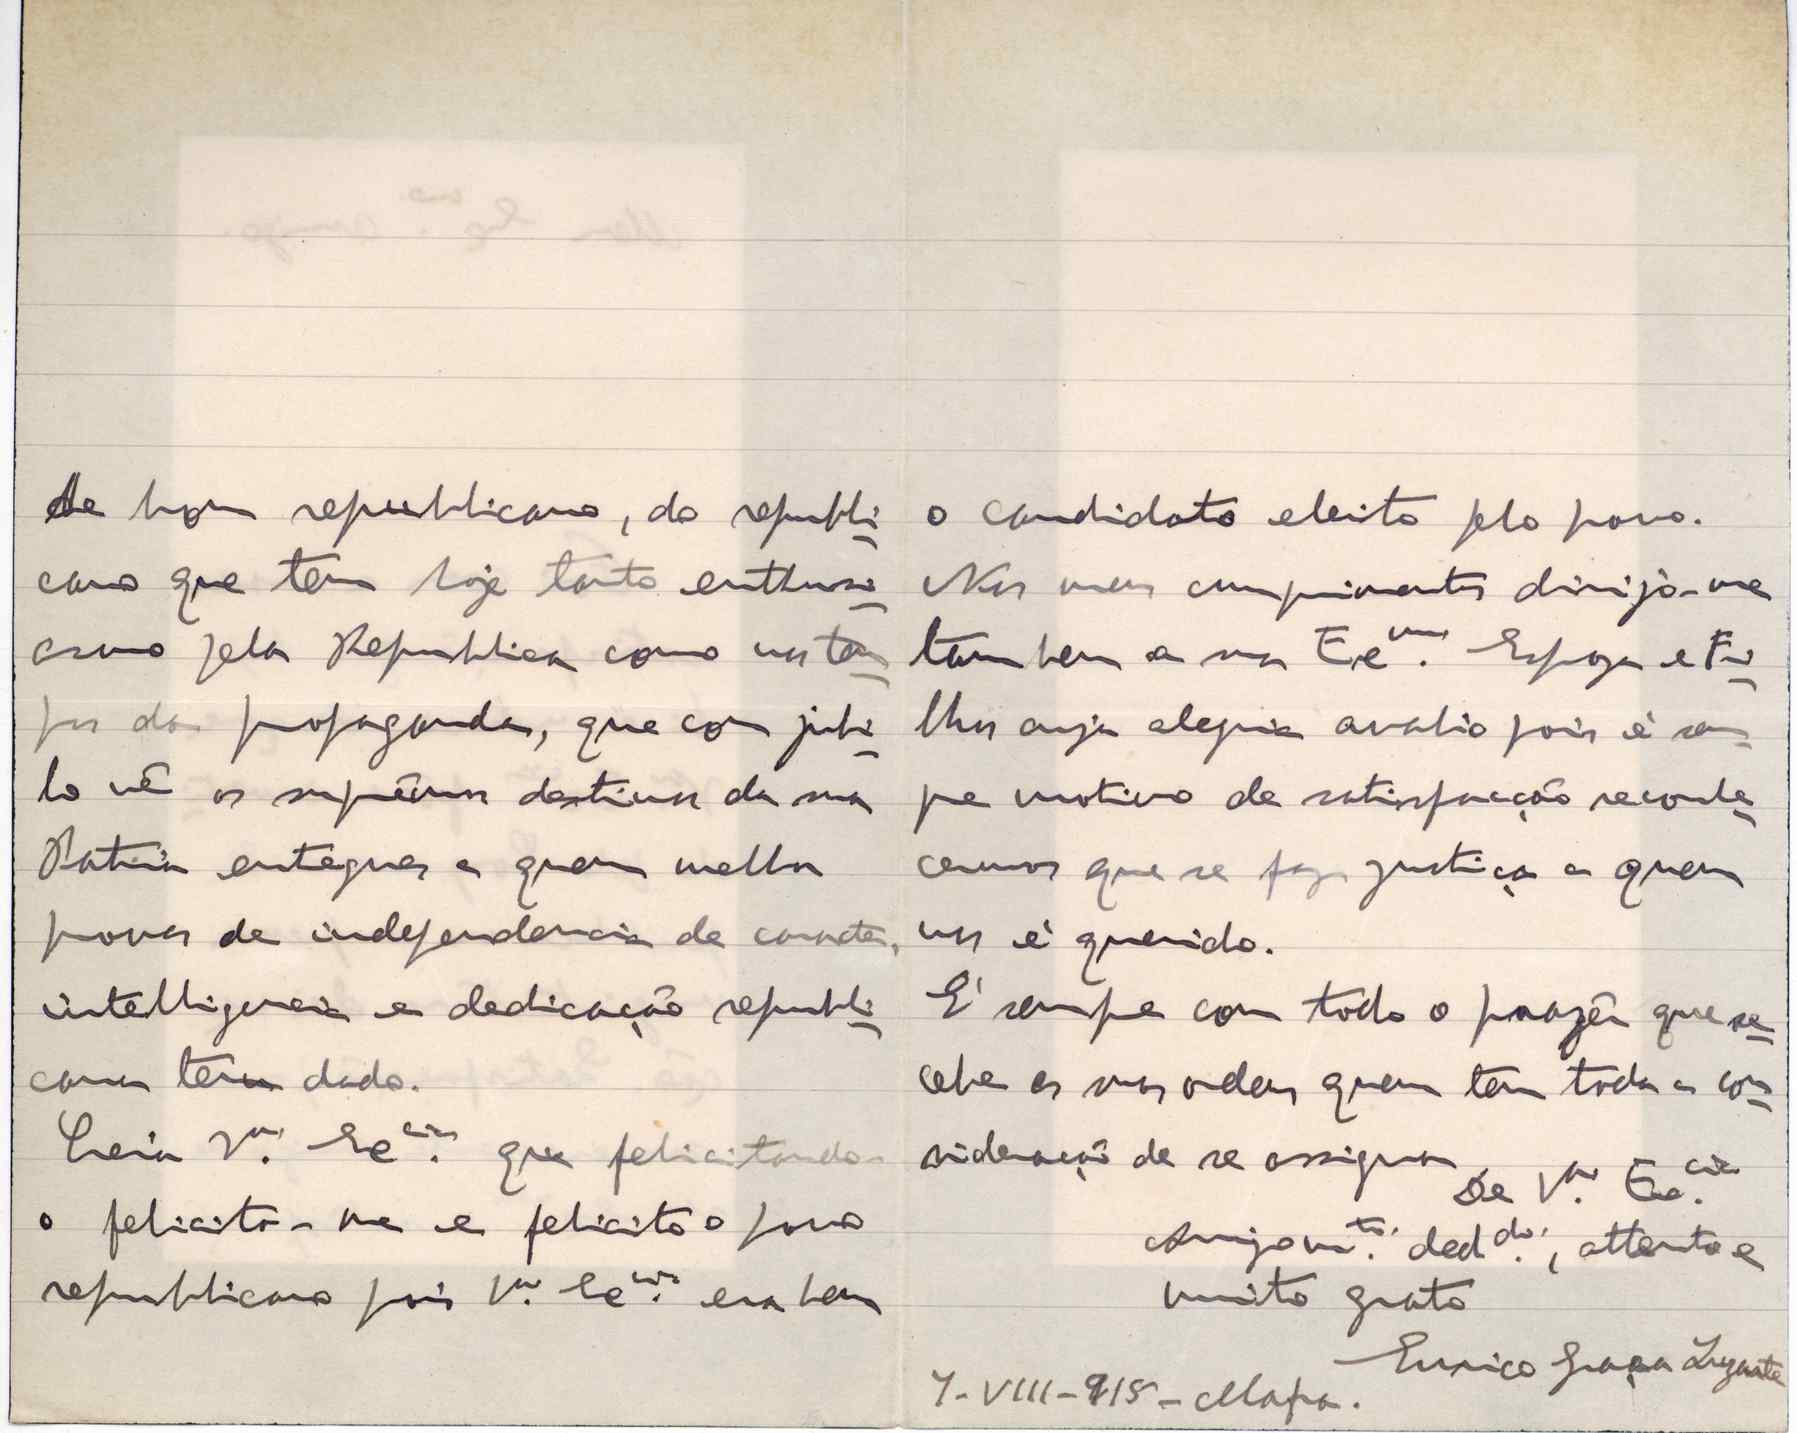 de bom republicano, do republi-
cano que tem hoje tanto enthusi-
asmo pela Republica como nos tem-
pos da propaganda, que com jubi-
lo vê os suprêmos destinos da sua
Patria entregues a quem melhor
provas de independencia de caracter,
intelligencia e dedicação republi-
cana tem dado.
Creia V.ª Ex.cia que felicitando-
o felicito-me e felicito o povo
republicano pois V.ª Ex.cia era bem
o candidato eleito pelo povo.
Nos meus cumprimentos dirijo-me
tambem a sua Ex.ma Espoza e Fi-
lhos cuja alegria avalio pois é sem-
pre motivo de satisfacção reconhe-
cermos que se faz justiça a quem
nos é querido.
E' sempre com todo o prazêr que re-
cebe as suas ordens quem tem toda a con-
sideração de se assignar
De V.ª Ex.cia
Amigo m.to ded.do, attento e
muito grato
Eurico Graça
7-VIII-915-Mafra.